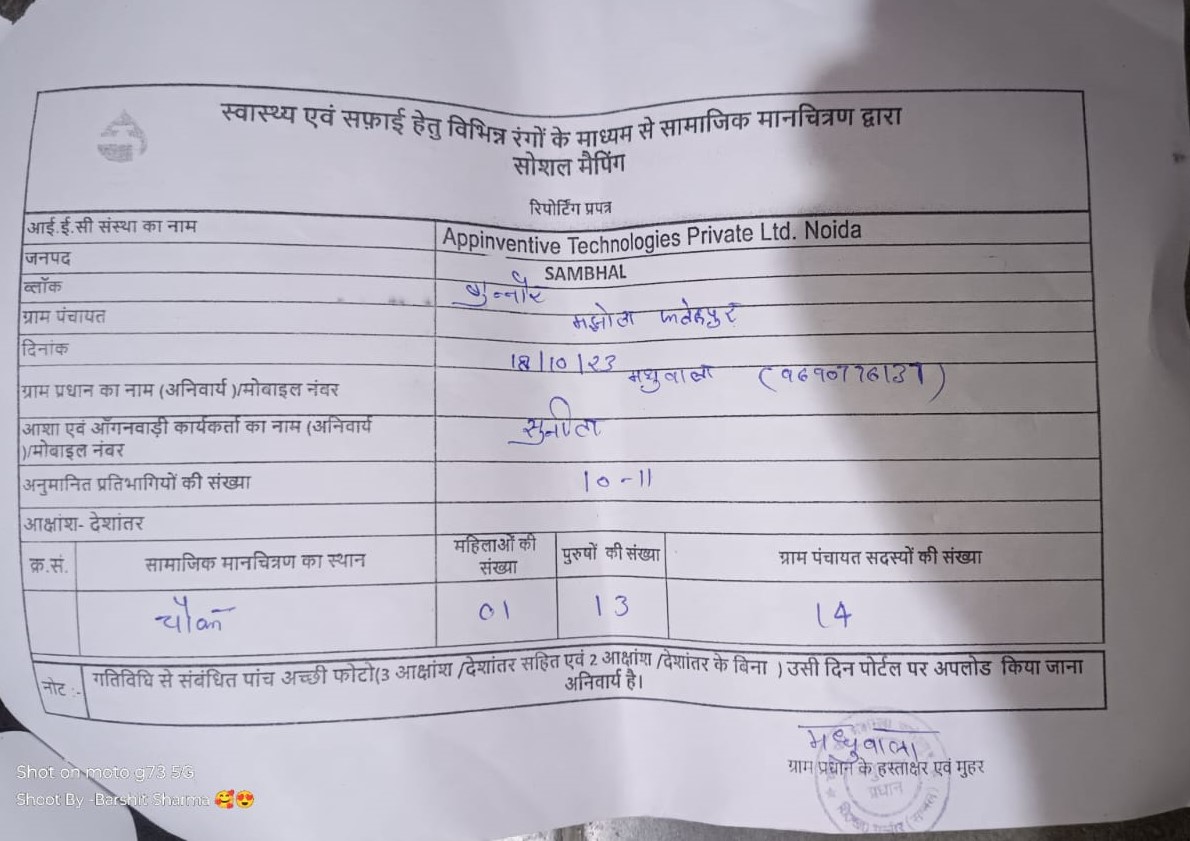 स्वास्थ्य एवं सफ़ाई हेतु विभिन्न रंगों के माध्यम से सामाजिक मानचित्रण द्वारा
सोशल मैपिंग
रिपोर्टिंग प्रपत्र
आई.ई.सी संस्था का नाम Appinventive Technologies Private Ltd. Noida
जनपद SAMBHAL
ब्लॉक गुन्नौर
ग्राम पंचायत मझोला फतेहपुर
दिनांक 18/10/23
ग्राम प्रधान का नाम (अनिवार्य )/मोबाइल नंबर मधुवाला (9690776137)
आशा एवं ऑगनवाड़ी कार्यकर्ता का नाम (अनिवार्य
)/मोबाइल नंबर सुनीता
अनुमानित प्रतिभागियों की संख्या 10-11
आक्षांश- देशांतर
क्र.सं. सामाजिक मानचित्रण का स्थान महिलाओं की संख्या पुरुषों की संख्या ग्राम पंचायत सदस्यों की संख्या
चौक 01 13 14
नोट :- गतिविधि से संबंधित पांच अच्छी फोटो(3 आक्षांश /देशांतर सहित एवं 2 आक्षांश /देशांतर के बिना ) उसी दिन पोर्टल पर अपलोड किया जाना
अनिवार्य है।
मधुवाला
ग्राम प्रधान के हस्ताक्षर एवं मुहर
प्रधान
Shot on moto g73 5G
Shoot By -Barshit Sharma 🥰😍